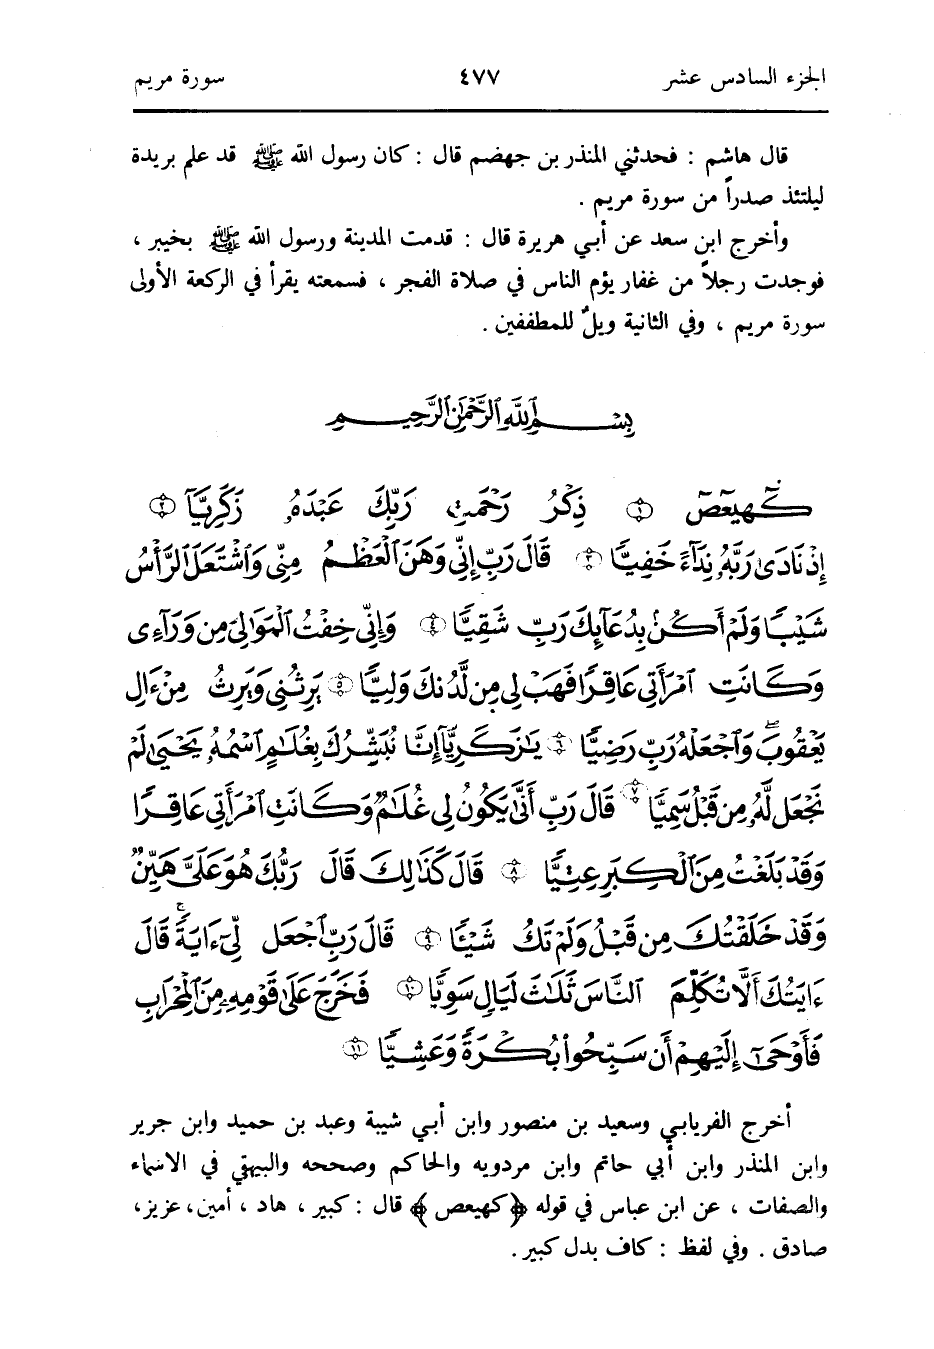 الجزء السادس عشر ٤٧٧ سورة مريم
قال هاشم : فحدثني المنذر بن جهضم قال : كان رسول الله ﷺ قد علم بريدة
ليلتئذ صدراً من سورة مريم .
وأخرج ابن سعد عن أبي هريرة قال : قدمت المدينة ورسول الله ﷺ بخيبر ،
فوجدت رجلاً من غفار يؤم الناس في صلاة الفجر ، فسمعته يقرأ في الركعة الأولى
سورة مريم ، وفي الثانية ويلٌ للمطففين .
بِسْمِ ٱللَّهِ ٱلرَّحْمَٰنِ ٱلرَّحِيمِ
كٓهيعٓصٓ ۝١ ذِكْرُ رَحْمَتِ رَبِّكَ عَبْدَهُۥ زَكَرِيَّآ ۝٢
إِذْ نَادَىٰ رَبَّهُۥ نِدَآءً خَفِيًّا ۝٣ قَالَ رَبِّ إِنِّى وَهَنَ ٱلْعَظْمُ مِنِّى وَٱشْتَعَلَ ٱلرَّأْسُ
شَيْبًا وَلَمْ أَكُنۢ بِدُعَآئِكَ رَبِّ شَقِيًّا ۝٤ وَإِنِّى خِفْتُ ٱلْمَوَٰلِىَ مِن وَرَآءِى
وَكَانَتِ ٱمْرَأَتِى عَاقِرًا فَهَبْ لِى مِن لَّدُنكَ وَلِيًّا ۝٥ يَرِثُنِى وَيَرِثُ مِنْ ءَالِ
يَعْقُوبَ ۖ وَٱجْعَلْهُ رَبِّ رَضِيًّا ۝٦ يَٰزَكَرِيَّآ إِنَّا نُبَشِّرُكَ بِغُلَٰمٍ ٱسْمُهُۥ يَحْيَىٰ لَمْ
نَجْعَل لَّهُۥ مِن قَبْلُ سَمِيًّا ۝٧ قَالَ رَبِّ أَنَّىٰ يَكُونُ لِى غُلَٰمٌ وَكَانَتِ ٱمْرَأَتِى عَاقِرًا
وَقَدْ بَلَغْتُ مِنَ ٱلْكِبَرِ عِتِيًّا ۝٨ قَالَ كَذَٰلِكَ قَالَ رَبُّكَ هُوَ عَلَىَّ هَيِّنٌ
وَقَدْ خَلَقْتُكَ مِن قَبْلُ وَلَمْ تَكُ شَيْـًٔا ۝٩ قَالَ رَبِّ ٱجْعَل لِّىٓ ءَايَةً ۚ قَالَ
ءَايَتُكَ أَلَّا تُكَلِّمَ ٱلنَّاسَ ثَلَٰثَ لَيَالٍ سَوِيًّا ۝١٠ فَخَرَجَ عَلَىٰ قَوْمِهِۦ مِنَ ٱلْمِحْرَابِ
فَأَوْحَىٰٓ إِلَيْهِمْ أَن سَبِّحُوا۟ بُكْرَةً وَعَشِيًّا ۝١١
أخرج الفريابي وسعيد بن منصور وابن أبي شيبة وعبد بن حميد وابن جرير
وابن المنذر وابن أبي حاتم وابن مردويه والحاكم وصححه والبيهقي في الاسماء
والصفات ، عن ابن عباس في قوله ﴿كهيعص﴾ قال : كبير ، هاد ، أمين، عزيز،
صادق . وفي لفظ : كاف بدل كبير .